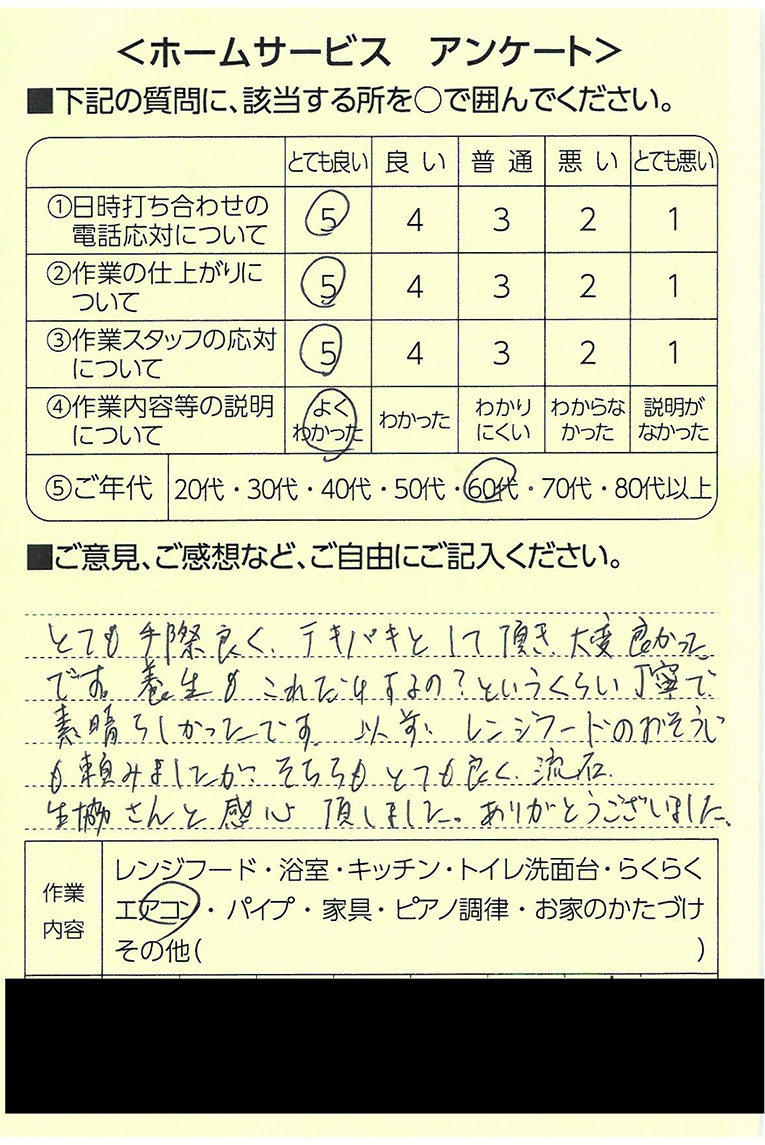 ＜ホームサービス　アンケート＞
■下記の質問に、該当する所を○で囲んでください。
とても良い　良い　普通　悪い　とても悪い
①日時打ち合わせの
電話応対について　5　4　3　2　1
②作業の仕上がりに
ついて　5　4　3　2　1
③作業スタッフの応対
について　5　4　3　2　1
④作業内容等の説明
について　よくわかった　わかった　わかりにくい　わからなかった　説明がなかった
⑤ご年代　20代・30代・40代・50代・60代・70代・80代以上
■ご意見、ご感想など、ご自由にご記入ください。
とても手際良く、テキパキとして頂き、大変良かった
です。養生もこれだけするの？というくらい丁寧で
素晴らしかったです。以前、レンジフードのおそうじ
も頼みましたが、そちらもとても良く、流石、
生協さんと感心頂しました。ありがとうございました。
作業内容
レンジフード・浴室・キッチン・トイレ洗面台・らくらく
エアコン・パイプ・家具・ピアノ調律・お家のかたづけ
その他(　)